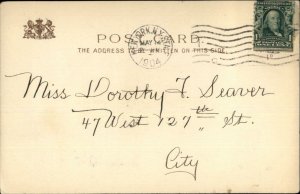 POST CARD
THE ADDRESS TO BE WRITTEN ON THIS SIDE
NEW YORK, N.Y.
MAY
1904
Miss Dorothy F. Seaver
47 West 127th St.
City